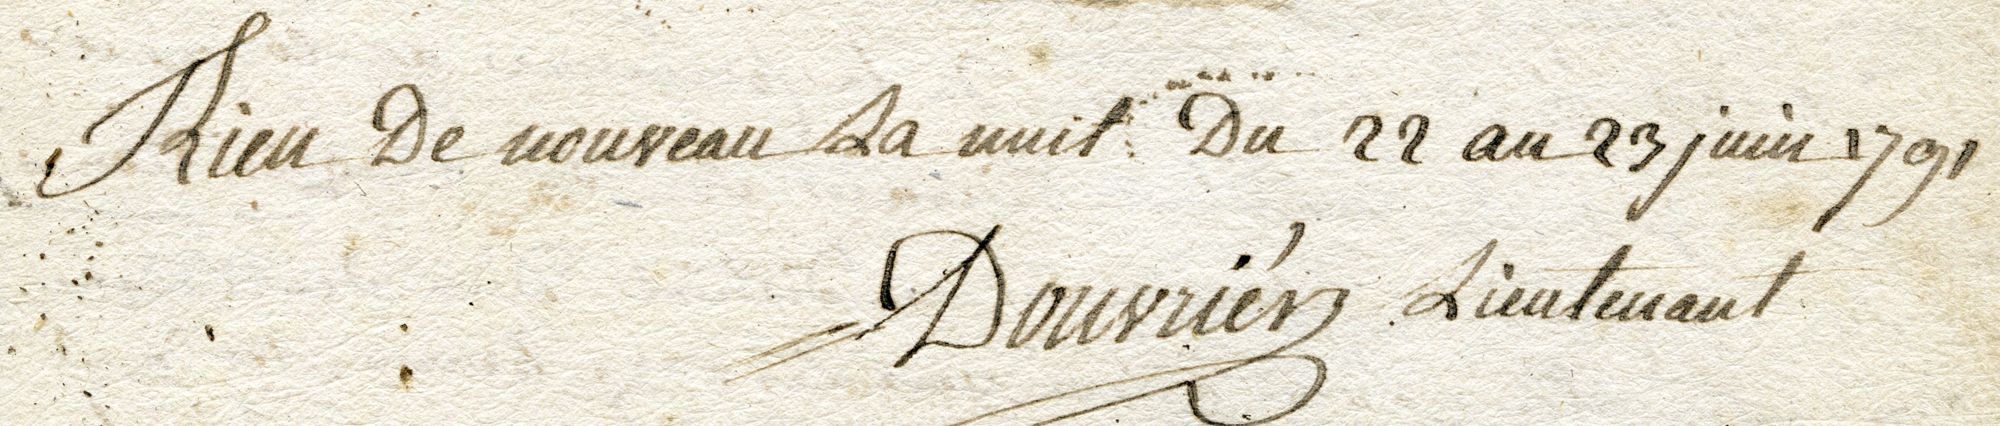 Rien De nouveau La nuit Du 22 au 23 juin 1791
Douvriér Lieutenant